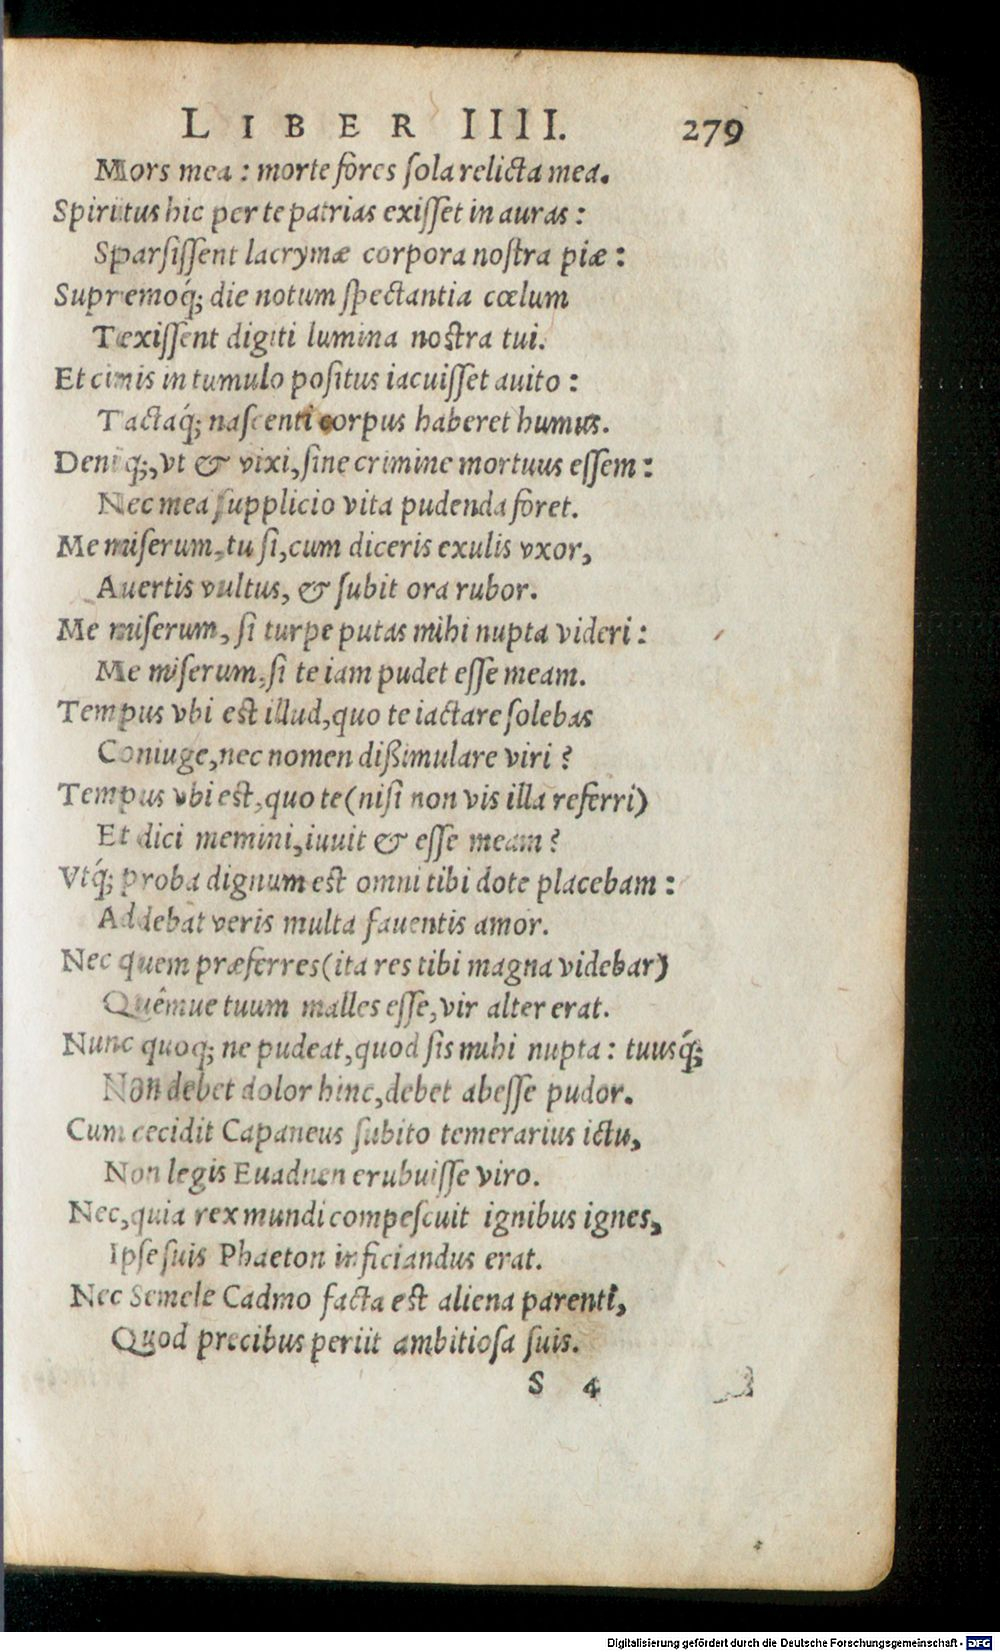 LIBER IIII. 279
Mors mea : morte fores ſola relicta mea.
Spiritus hic per te patrias exiſſet in auras :
Sparſiſſent lacrymæ corpora noſtra piæ :
Supremoq́; die notum ſpectantia cœlum
Texiſſent digiti lumina noſtra tui.
Et cinis in tumulo poſitus iacuiſſet auito :
Tactaq́; naſcenti corpus haberet humus.
Deniq;, vt & vixi, ſine crimine mortuus eſſem :
Nec mea ſupplicio vita pudenda foret.
Me miſerum, tu ſi, cum diceris exulis vxor,
Auertis vultus, & ſubit ora rubor.
Me miſerum, ſi turpe putas mihi nupta videri :
Me miſerum, ſi te iam pudet eſſe meam.
Tempus vbi eſt illud, quo te iactare ſolebas
Coniuge, nec nomen dißimulare viri ?
Tempus vbi eſt, quo te (niſi non vis illa referri)
Et dici memini, iuuit & eſſe meam ?
Vtq́; proba dignum eſt omni tibi dote placebam :
Addebat veris multa fauentis amor.
Nec quem præferres (ita res tibi magna videbar)
Quêmue tuum malles eſſe, vir alter erat.
Nunc quoq; ne pudeat, quod ſis mihi nupta : tuusq́;
Non debet dolor hinc, debet abeſſe pudor.
Cum cecidit Capaneus ſubito temerarius ictu,
Non legis Euadnen erubuiſſe viro.
Nec, quia rex mundi compeſcuit ignibus ignes,
Ipſe ſuis Phaeton inficiandus erat.
Nec Semele Cadmo facta eſt aliena parenti,
Quod precibus periit ambitioſa ſuis.
S 4
Digitalisierung gefördert durch die Deutsche Forschungsgemeinschaft - DFG